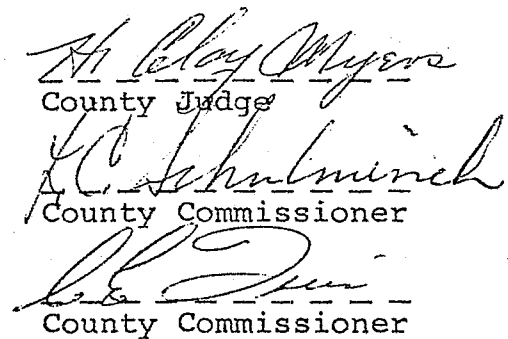 H Clay Myers
County Judge
K.C. Schulmerich
County Commissioner
C E
County Commissioner